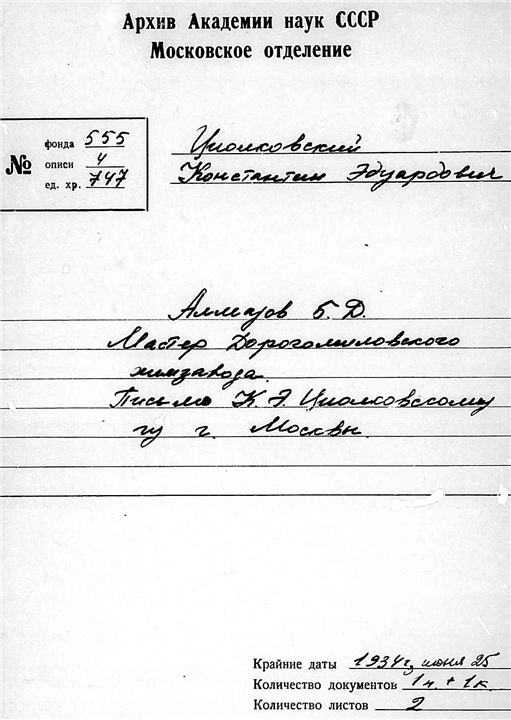 Архив Академии наук СССР
Московское отделение
№
фонда 555
описи 4
ед. хр. 747
Циолковский
Константин Эдуардович
Алмазов Б. Д.
Мастер Дорогомиловского
химзавода.
Письмо К. Э. Циолковскому
из г. Москвы.
Крайние даты 1934г, июня 25
Количество документов 1п. + 1к.
Количество листов 2